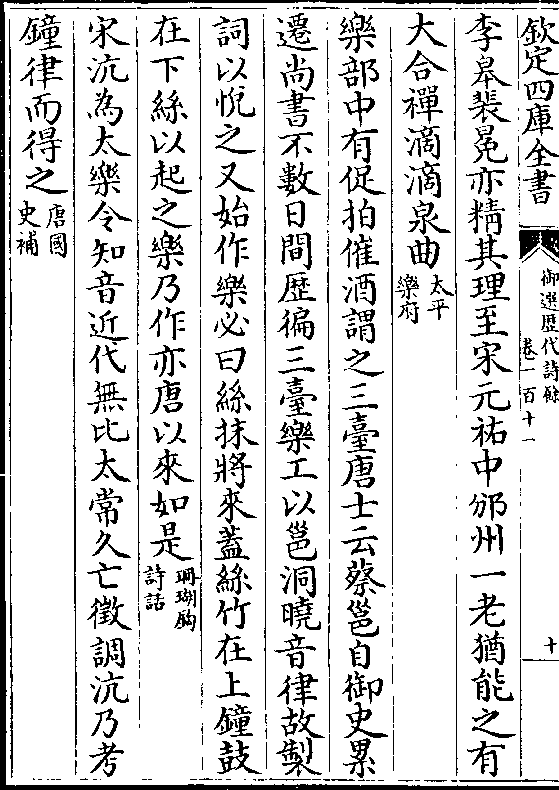 欽定四庫全書
御選歴代詩餘
卷一百十一
十
李皋裴冕亦精其理至宋元祐中邠州一老猶能之有
大合禪滴滴泉曲太平樂府
樂部中有促拍催酒謂之三臺唐士云蔡邕自御史累
遷尚書不數日間歴徧三臺樂工以邕洞曉音律故製
詞以悅之又始作樂必曰絲抹將來蓋絲竹在上鐘鼓
在下絲以起之樂乃作亦唐以來如是珊瑚鈎詩話
宋沇為太樂令知音近代無比太常久亡徵調沇乃考
鐘律而得之唐國史補